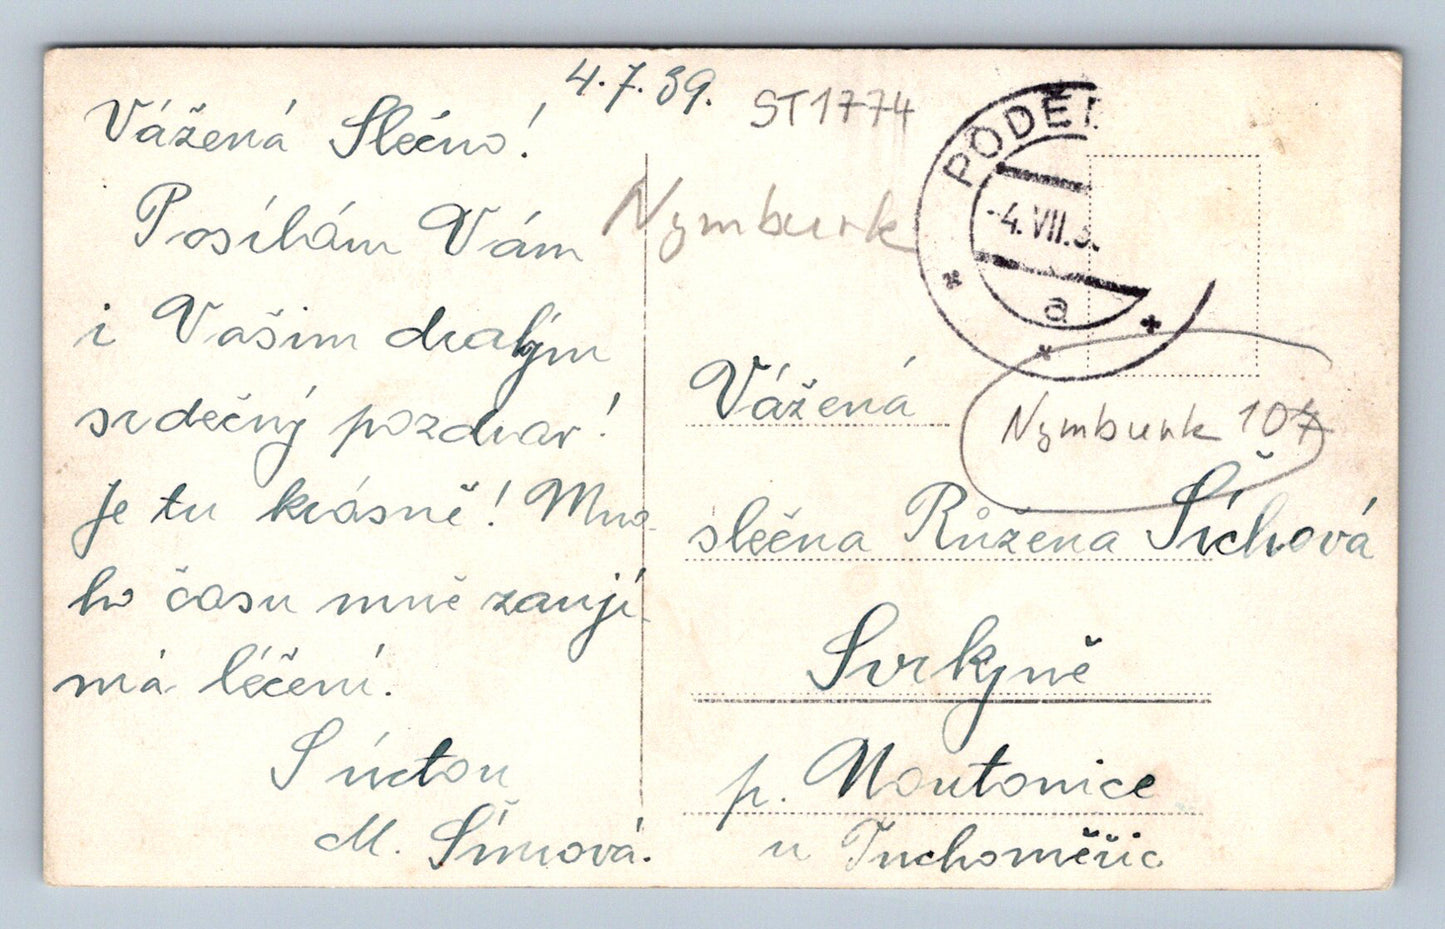 4.7.39.
Vážená Slečno!
Posílám Vám
i Vašim drahým
srdečný pozdrav!
Je tu krásně! Mno-
ho času mně zaují-
má léčení.
S úctou
M. Šímová.
ST1774
Nymburk
PODĚ
-4.VII.3
a
Nymburk 104
Vážená
slečna Růžena Šíchová
Svrkyně
p. Noutonice
u Tuchoměřic